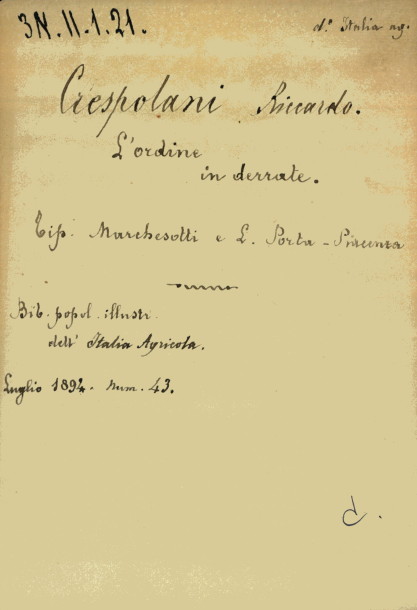 3N.II.1.21.
d.° Italia ag.
Crespolani Riccardo.
L'ordine
in derrate.
Tip. Marchesotti e L. Porta - Piacenza
Bib. popol. illustr.
dell' Italia Agricola.
Luglio 1894. Num. 43.
d.